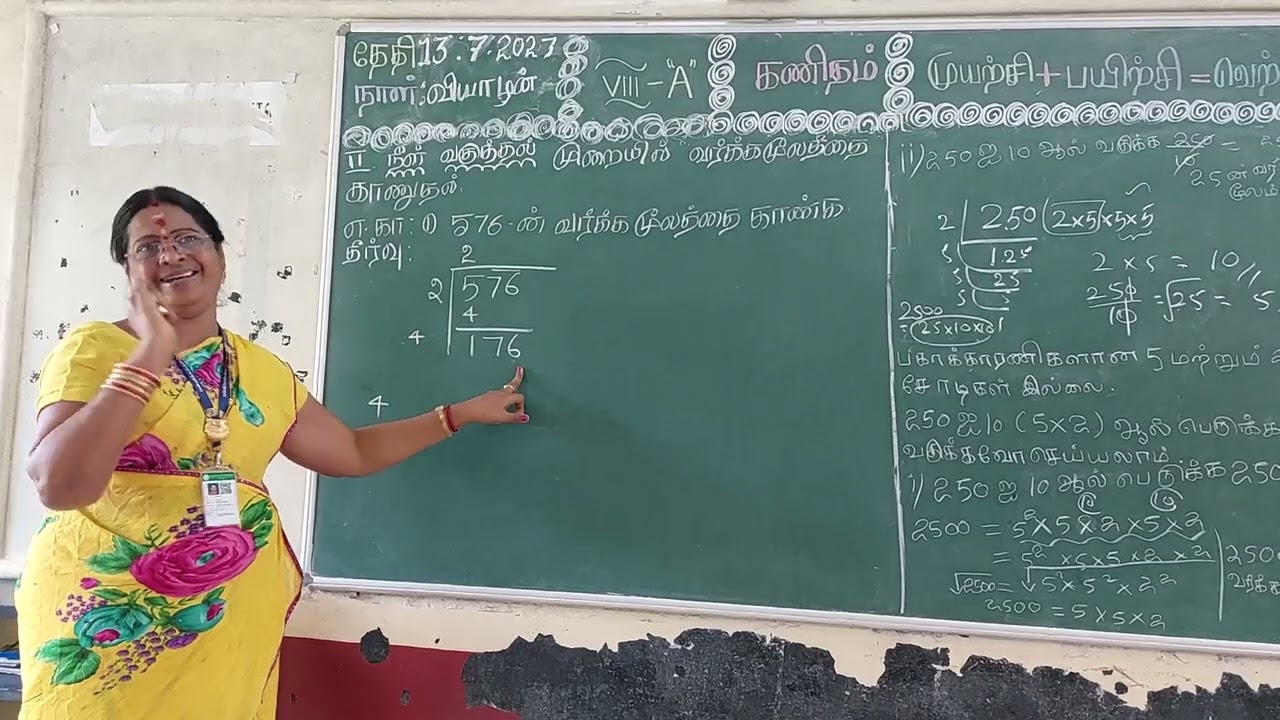 தேதி 13.7.2023
நாள்: வியாழன்
VIII - "A"
கணிதம்
முயற்சி + பயிற்சி = வெற்
II நீள் வகுத்தல் முறையில் வர்க்கமூலத்தை
காணுதல்.
எ.கா: 1) 576-ன் வர்க்க மூலத்தை காண்க
தீர்வு:
2
2 576
4
4 176
4
ii) 250 ஐ 10 ஆல் வகுக்க 250/10 = 2
25 ன் வர்
மூலம்
2 250 (2×5)×5×5
5 125
5 25
5 5
1
2 × 5 = 10
250/10 = √25 = 5
2500
= 25×10×10
பகாக்காரணிகளான 5 மற்றும் 2
சோடிகள் இல்லை.
250 ஐ 10 (5×2) ஆல் பெருக்க
வகுக்கவோ செய்யலாம்.
i) 250 ஐ 10 ஆல் பெருக்க 250
2500 = 5²×5×2×5×2
= 5²×5×5×2×2
√2500 = √5²×5²×2²
2500 = 5×5×2
2500
வர்க்க